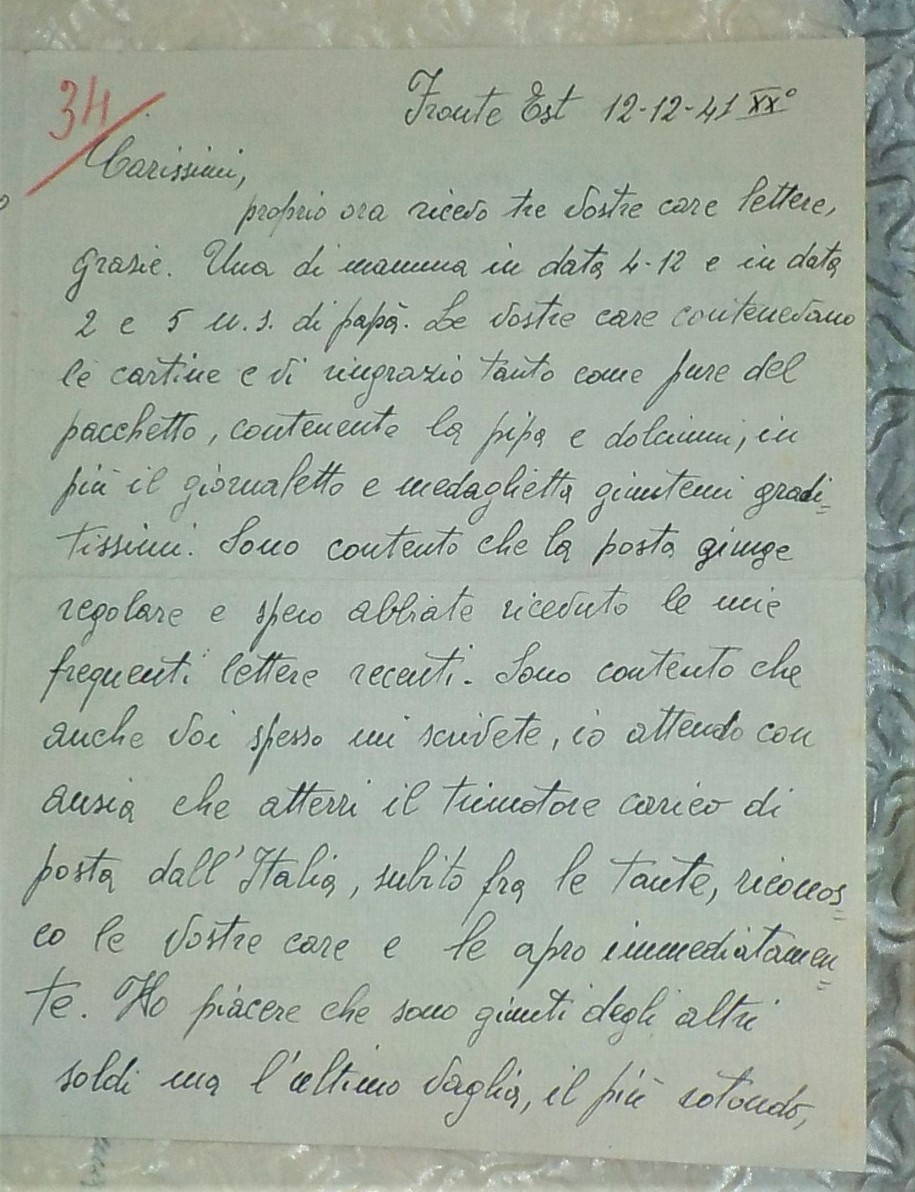 34
Fronte Est 12-12-41 XX°
Carissimi,
proprio ora ricevo tre vostre care lettere,
grazie. Una di mamma in data 4-12 e in data
2 e 5 u.s. di papà. Le vostre care contenevano
le cartine e vi ringrazio tanto come pure del
pacchetto, contenente la pipa e dolciumi, in
più il giornaletto e medaglietta giuntemi gradi=
tissimi. Sono contento che la posta giunge
regolare e spero abbiate ricevuto le mie
frequenti lettere recenti. Sono contento che
anche voi spesso mi scrivete, io attendo con
ansia che atterri il trimotore carico di
posta dall'Italia, subito fra le tante, riconos=
co le vostre care e le apro immediatamen=
te. Ho piacere che sono giunti degli altri
soldi ma l'ultimo vaglia, il più rotondo,